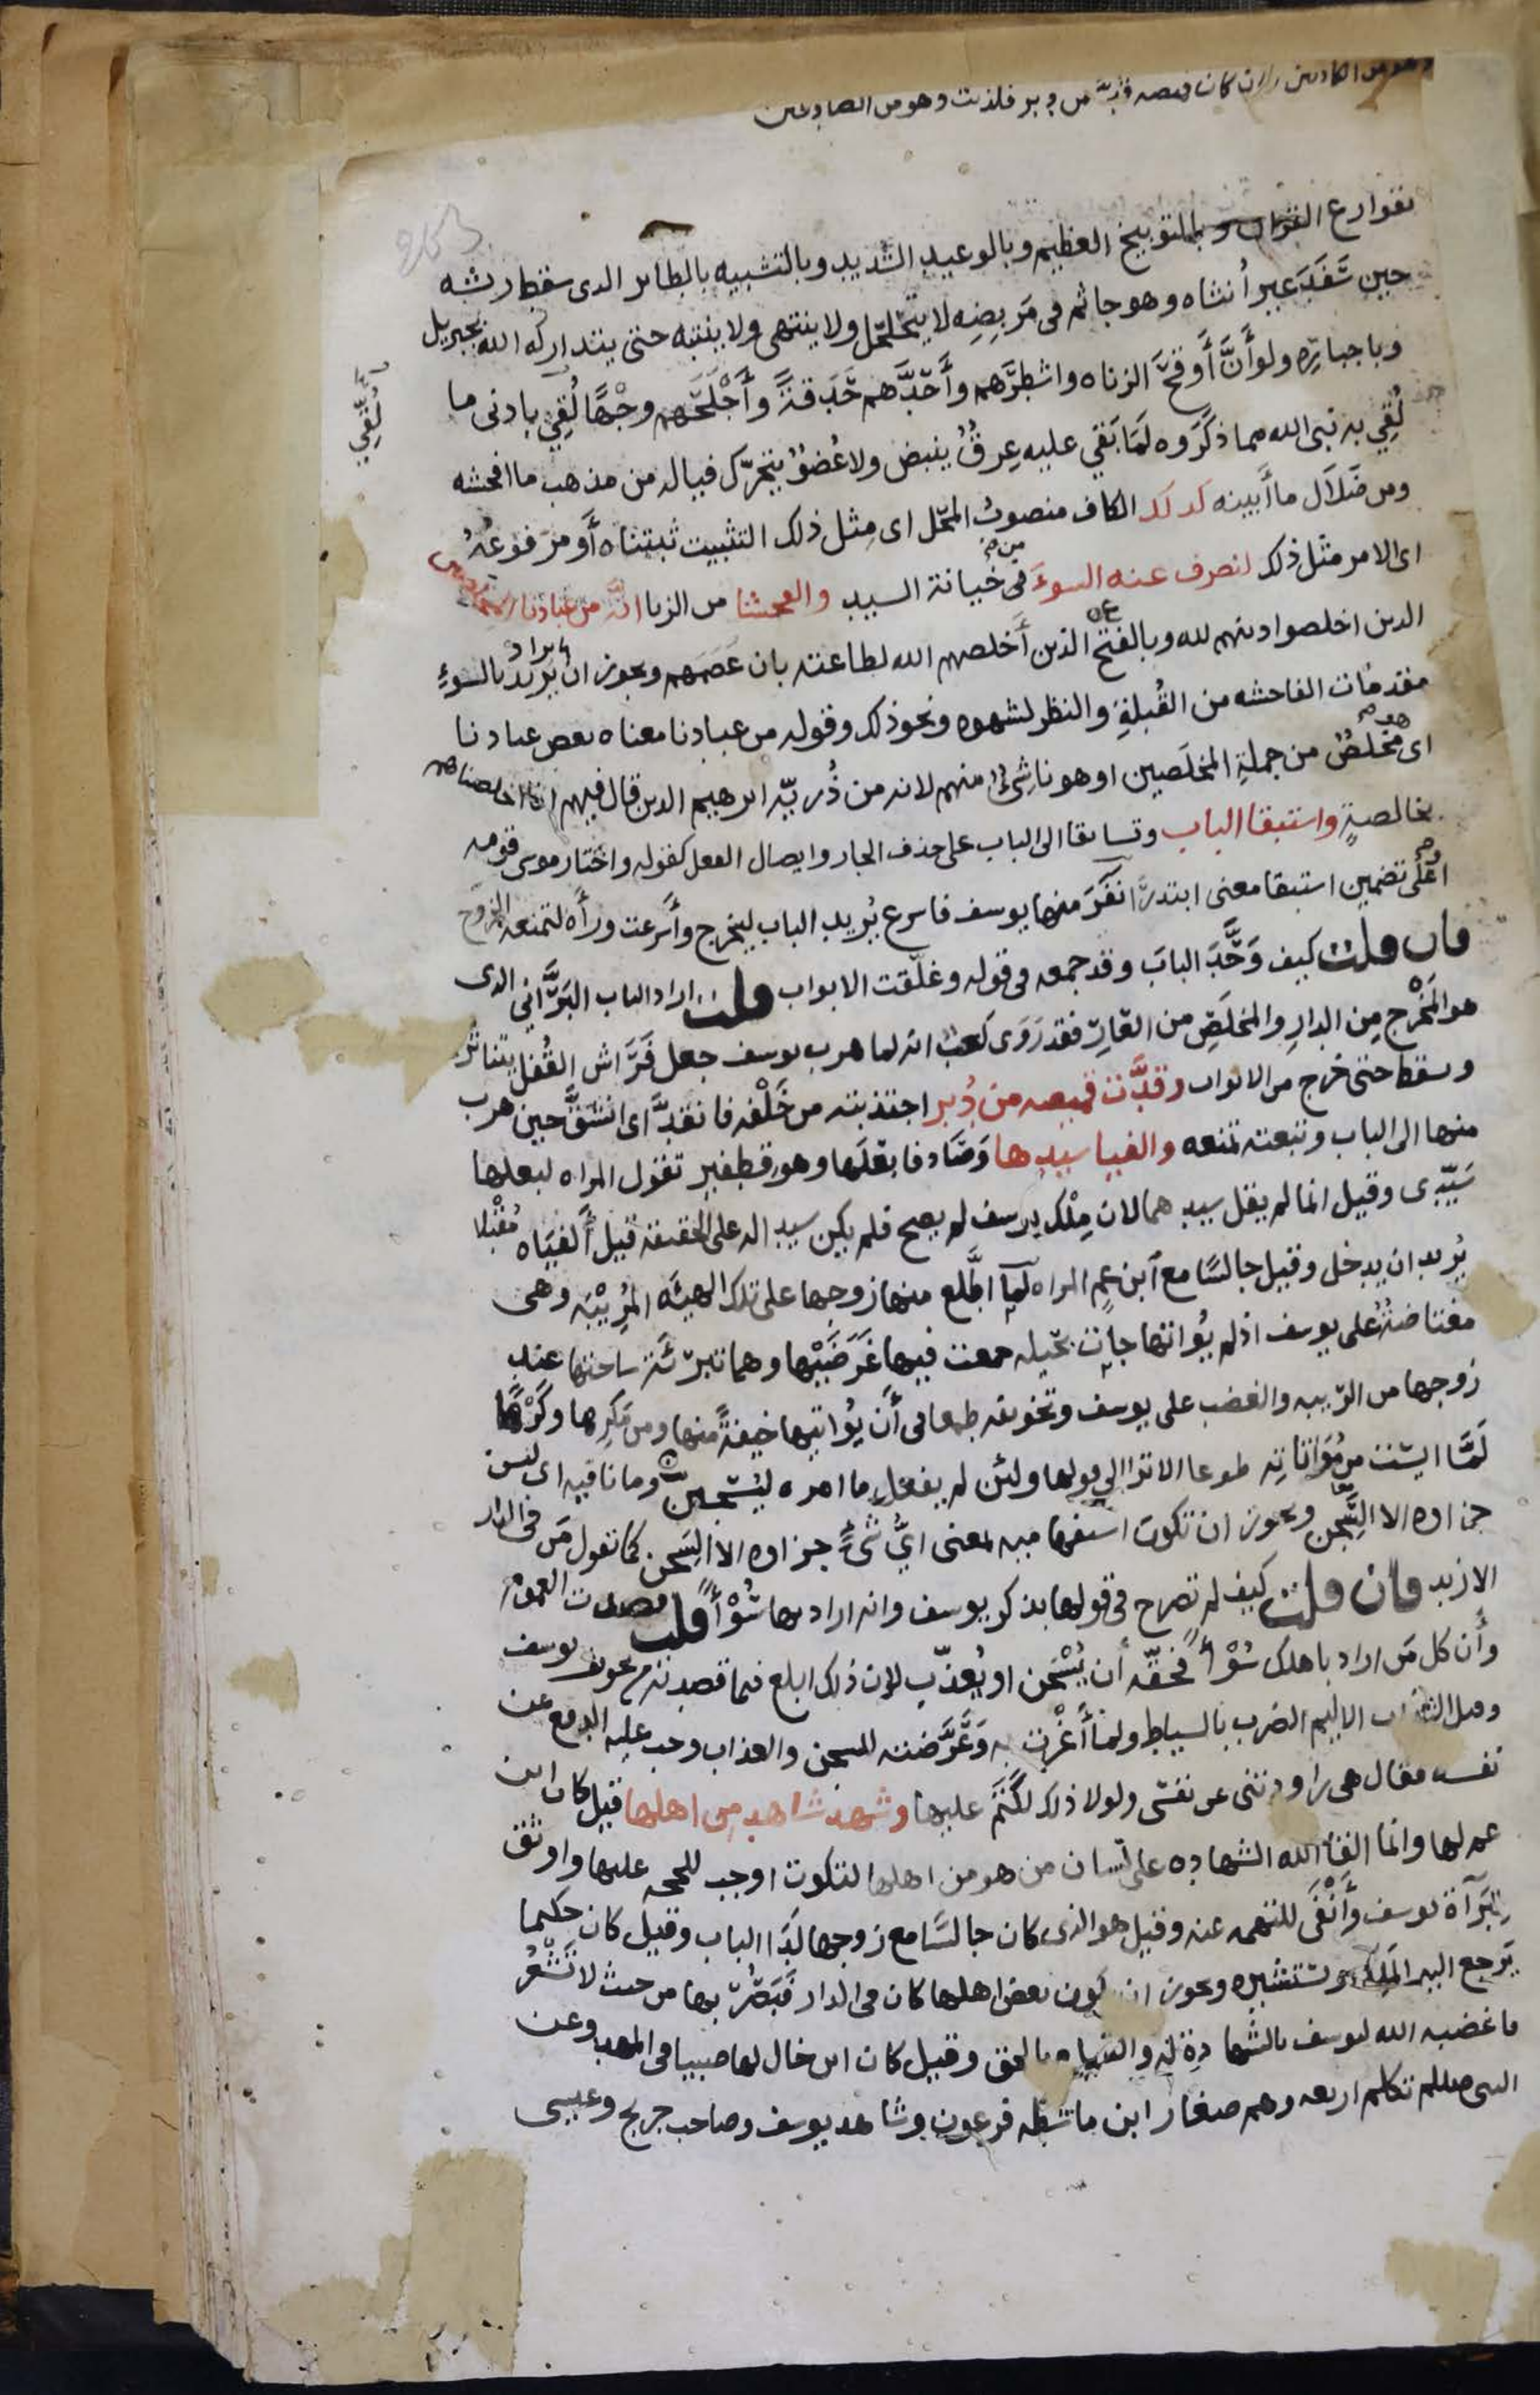 وهو من الكاذبين وان كان قميصه قُدَّ من دبر فكذبت وهو من الصادقين
بقوارع القران وبالتوبيخ العظيم وبالوعيد الشديد وبالتشبيه بالطاىر الدى سقط رىشه
حين سَفَدَ غير أُنثاه وهو جاثم فى مَربِضِه لا يتحَلحَل ولا ينتهى ولا ينتبه حتى يتداركه الله بجبريل
وباجباره ولو أنَّ أَوقحَّ الزناه واشطرَّهم وأَحَدَّهم حَدَقةً وأَجْلَحَهم وجْهًا لُقِيَ بادنى ما
لُقِّيَ
لُقِي به نبى الله مما ذكَروه لَمَا بَقي عليه عِرقٌ ينبض ولا عُضوٌ يتحرّك فياله من مذهب ما افحشه
ومن ضَلاَل ما أَبينه كدلك الكاف منصوبُ المحّل اى مِثل ذلك التثبيت ثبتناه أَو مرفوعُه
اى الامر مثل ذلك لنصرف عنه السوءَ من خيانة السيد والفحشا من الزنا انّه من عبادنا المخلصين
الدىن اخلصوا دينهم لله وبالفتح الذين أخلصهم الله لطاعته بان عَصَمهم وىجوز ان يريد بالسوءِ
يراد
مقدمات الفاحشه من القُبلةِ والنظر لشهوه ونحو ذلك وقوله من عبادنا معناه بعض عبادنا
اى هو مخلَصٌ من جملةِ المخلَصين او هو ناشِئٌ منهم لانه من ذُريّه ابرهيم الدىن قال فيهم انا اخلصناهم
بخالصةٍ واستبقا الباب وتسابقا الى الباب على حذف الجار وايصال الفعل كقوله واختار موسى قومه
او على تضمين استبقا معنى ابتدرا نفَرَ منها يوسف فاسرع يُريد الباب ليخرج وأسرعت ورآه لتمنعه الخروج
فان قلت كيف وَحَّدَ البابَ وقد جمعه فى قوله وغلّقت الابواب قلت اراد الباب البَرَّانى الدى
هو المَخْرج مِن الدارِ والمخلَصِ من العَارِ فقد رَوَى كعبٌ انه لما هرب يوسف جعل فَرَاش القُفل يتناثر
وىسقط حتى خرج من الابواب وقدَّت قميصه من دُبر اجتذبته من خَلْفه فانقدَّ اى انشقَّ حين هرب
منها الى الباب وتبعته تمنعه والفيا سيدها وَصَادفا بعلَها وهو قطفير تقول المراه لبعلها
سَيّدى وقيل انما لم يقل سيدهما لان مِلْك يوسف لم يصح فلم يكن سيدا له على الحقيقه قيل أَلفيَاه مُقْبِلا
يُريد ان يدخل وقيل جالسًا مع ابن عم المراه لَما اطَّلع منها زوجها على تلك الهيئه المُرِيْبَه وهى
مغتاضةٌ على يوسف اذ لم يُواتها جاءت بحيله جمعت فيها غَرَضَيْها وهما تبرئَة ساحتها عند
زوجها من الرّيبه والغضب على يوسف وتخويفه طمعا فى أَن يُواتيها خيفةً منها ومن مَكرها وكَرْهًا
لَمَّا ايَسَت من مُوَاتاتِه طوعا الا ترا الى قولها ولئن لم يفعل ما امره ليُسْجننَّ وما نافيه اى ليس
جزاوه الا السّجن وىجوز ان تكون استفهاميه بمعنى أيُّ شَىءٍ جزاوه الا السِّجن كما تقول مَن فى الدار
الا زيد فان قلت كيف لم تصرح فى قولها بذكر يوسف وانه اراد بها سُوْأً قلت قصدت العموم
وأن كل مَن اراد باهلك سُوْأً فحَقّه أن يُسْجَن او يُعذّب لان ذلك ابلغ فيما قصدته من تخويف يوسف
وقيل العذاب الاليم الضرب بالسياط ولمّا أَغْرَت به وَعَرَّضته للسجن والعذاب وجب عليه الدفع عن
نفسه فقال هى راودتنى عن نفسى ولولا ذلك لكَتَم عليها وشهد شاهد من اهلها قيل كان ابن
عم لها وانما القى الله الشهاده على لسان من هو من اهلها لتكون اوجب للحجه عليها واوثق
لِبَرآءة يوسف وأَنْفَى للتهمه عنه وقيل هو الذى كان جالسًا مع زوجها لَدَا الباب وقيل كان حكيما
يَرجع اليه المَلِك ويستشيره وىجوز ان يكون بعض اهلها كان فى الدار فبَصُرَ بها من حيث لا تَشْعُر
فاغضبه الله ليوسف بالشهادةِ له والقيام بالحق وقيل كان ابن خال لها صبيا فى المهد وعن
النبى صللم تكلم اربعه وهم صغار ابن ماشطه فرعون وشاهد يوسف وصاحب جريج وعيسى